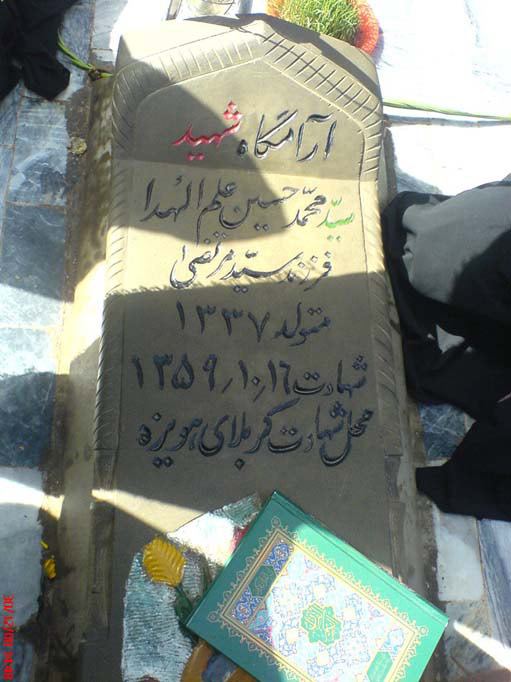 آرامگاه شهید
سیّد محمّد حسین علم الهُدا
فرزند سیّد مرتضی
متولد ۱۳۳۷
شهادت ۱۶٫۱۰٫۱۳۵۹
محل شهادت کربلای هویزه